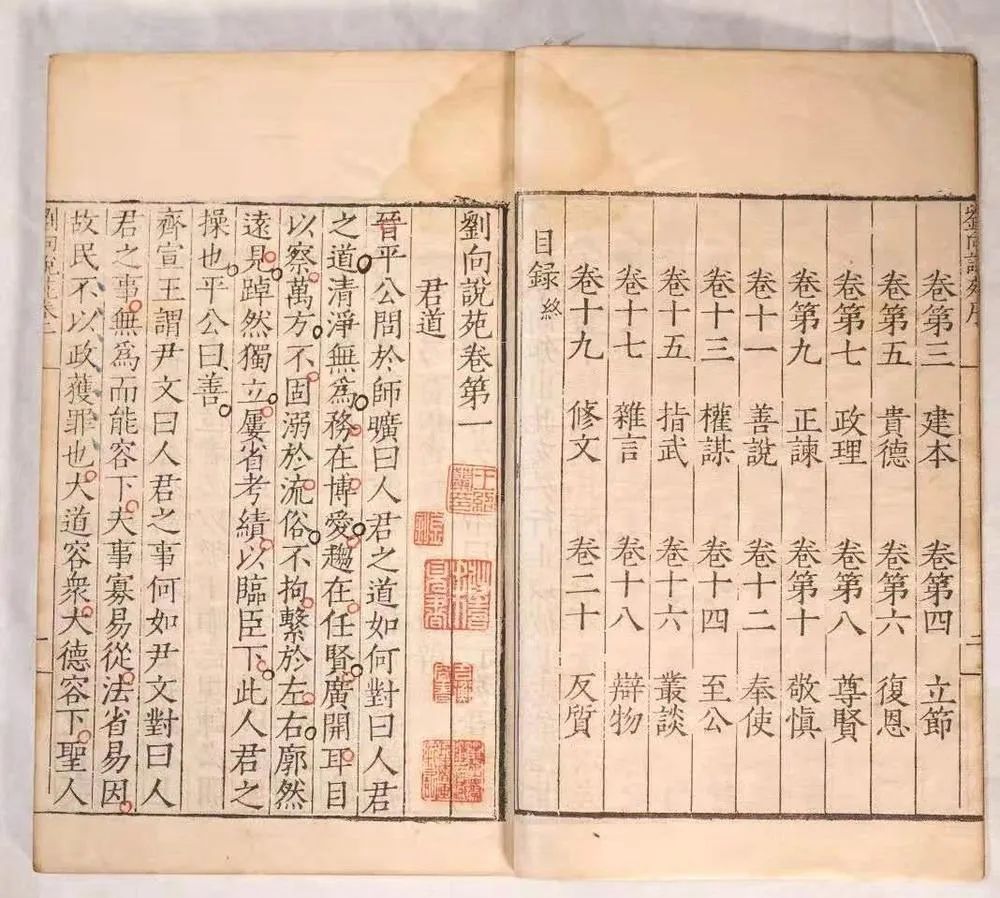 劉向說苑序
二
卷第三 建本 卷第四 立節
卷第五 貴德 卷第六 復恩
卷第七 政理 卷第八 尊賢
卷第九 正諫 卷第十 敬慎
卷十一 善說 卷十二 奉使
卷十三 權謀 卷十四 至公
卷十五 指武 卷十六 叢談
卷十七 雜言 卷十八 辯物
卷十九 修文 卷二十 反質
目錄終
劉向說苑卷第一
君道
晉平公問於師曠曰人君之道如何對曰人君
之道清淨無爲務在博愛趨在任賢廣開耳目
以察萬方不固溺於流俗不拘繫於左右廓然
遠見踔然獨立屢省考績以臨臣下此人君之
操也平公曰善
齊宣王謂尹文曰人君之事何如尹文對曰人
君之事無爲而能容下夫事寡易從法省易因
故民不以政獲罪也大道容衆大德容下聖人